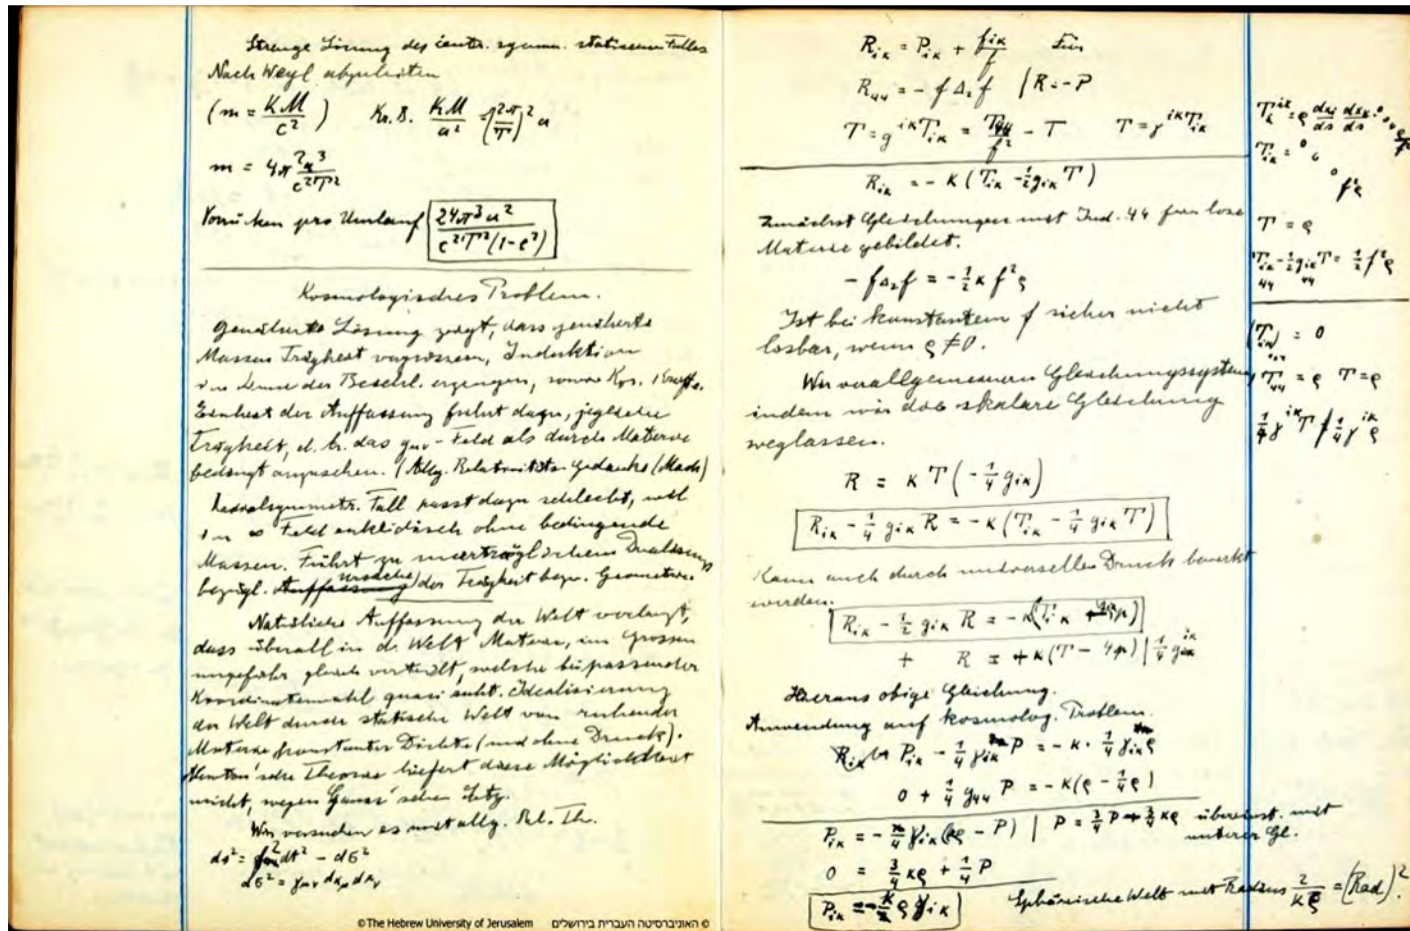 Strenge Lösung des centr. symm. statischen Falles
Nach Weyl abzuleiten
(m = KM/c²) K. B. KM/a² = (2π/T)² a
m = 4π² a³/c²T²
Vorrücken pro Umlauf 24π³a²/c²T²(1-e²)
Kosmologisches Problem.
Genäherte Lösung zeigt, dass genäherte
Massen Trägheit vergrössern, Induktion
im Sinne der Beschl. erzeugen, sowie
Einheit der Auffassung führt dazu, jegliche
Trägheit, d. h. das gμν-Feld als durch Materie
bedingt anzusehen. (Allg. Relativitäts-Gedanke (Mach)
Radialsymmetr. Fall passt dazu schlecht, weil
im ∞ Feld euklidisch ohne bedingende
Massen. Führt zu unerträglichem Dualismus
bezügl. Ursache der Trägheit bezw. Geometrie.
Natürliche Auffassung der Welt verlangt,
dass überall in d. Welt Materie, im Grossen
ungefähr gleich verteilt, welche bei passender
Koordinatenwahl quasi ruht. Idealisierung
der Welt durch statische Welt von ruhender
Materie konstanter Dichte (und ohne Druck).
Newton'sche Theorie liefert diese Möglichkeit
nicht, wegen Gauss'schen Satz.
Wir versuchen es mit allg. Rel. Th.
ds² = f² dt² - dσ²
dσ² = γμν dxμ dxν
Rik = Pik + fik/f Für
R44 = - f Δ₂ f | R = -P
T = g^ik Tik = T44/f² - T T = γ^ik Tik
Rik = - κ (Tik - ½ gik T)
Zunächst Gleichungen mit Ind. 44 für lose
Materie gebildet.
- f Δ₂ f = - ½ κ f² ρ
Ist bei konstantem f sicher nicht
lösbar, wenn ρ ≠ 0.
Wir verallgemeinern Gleichungssystem,
indem wir die skalare Gleichung
weglassen.
R = κ T (- ¼ gik)
Rik - ¼ gik R = - κ (Tik - ¼ gik T)
Kann auch durch universellen Druck bewirkt
werden.
Rik - ½ gik R = - κ (Tik + gik p)
+ R = + κ (T - 4p) | ¼ gik
Hieraus obige Gleichung.
Anwendung auf kosmolog. Problem.
Pik - ¼ γik P = - κ · ¼ γik ρ
0 + ¼ g44 P = - κ (ρ - ¼ ρ)
P = ¾ P + ¾ κρ übereinst. mit
unterer Gl.
0 = ¾ κρ + ¼ P
Pik = - κ/2 ρ γik Sphärische Welt mit Radius 2/κρ = (Rad)².
T = ρ
Tik - ½ gik T = ½ f² ρ
44 44
(Tik) = 0
T44 = ρ T = ρ